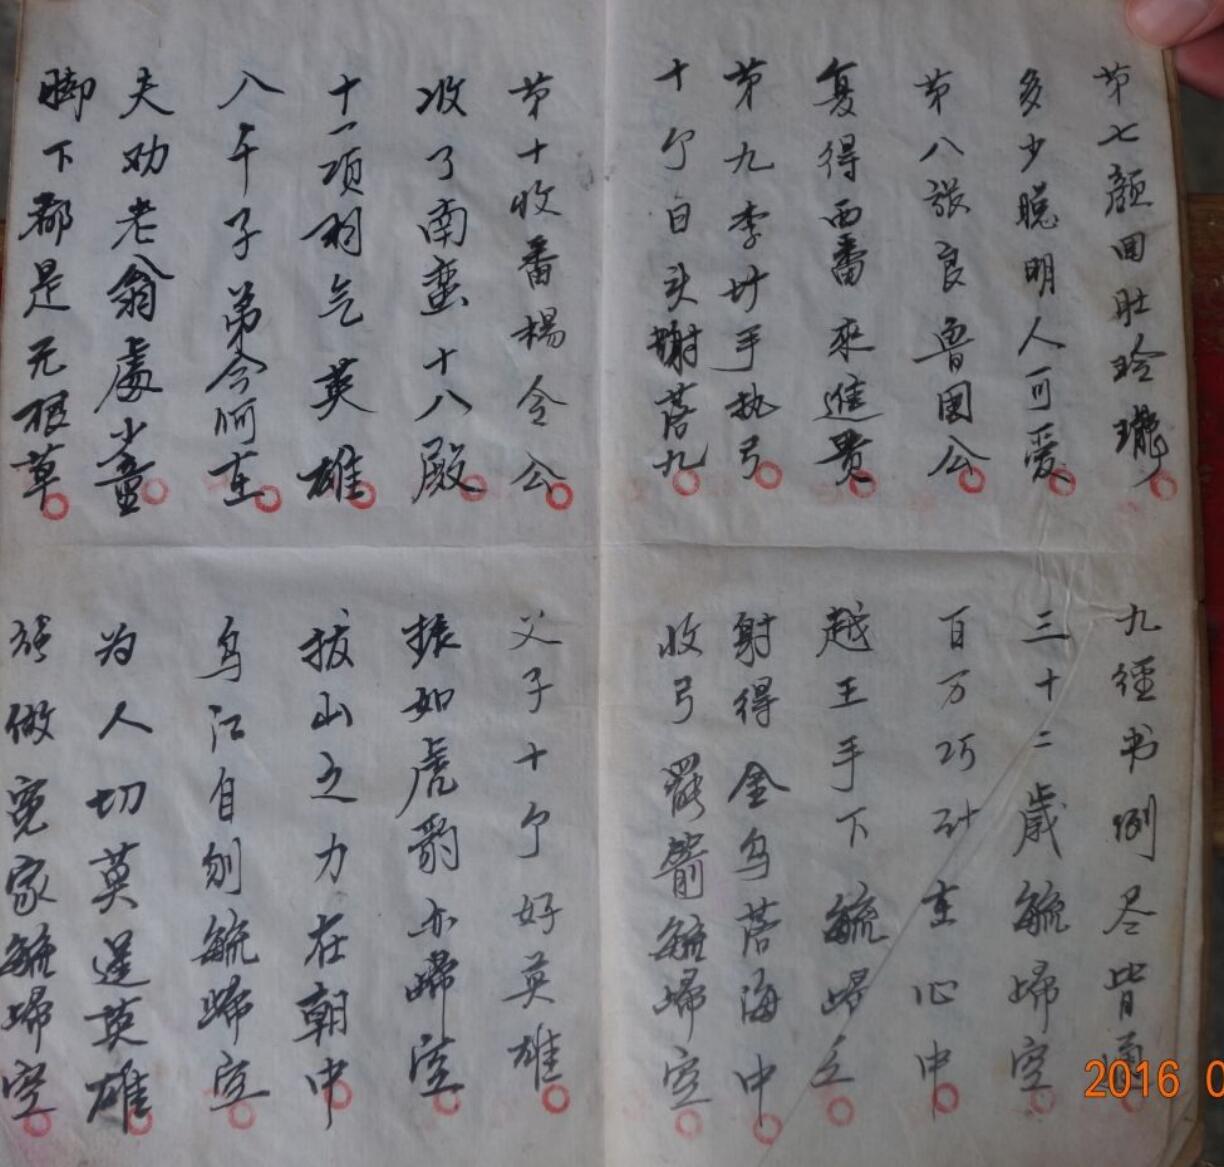 第七颜回肚玲瓏
九經书例尽皆通
多少聪明人可爱
三十二歲毓歸空
第八張良魯國公
百万巧計在心中
复得西番来進贵
越王手下毓歸空
第九李圹手执弓
射得金乌落海中
十个日头謝落九
收弓罷箭毓歸空
第十收番楊令公
父子十个好英雄
收了南蛮十八殿
振如虎豹亦歸空
十一项羽气英雄
拔山之力在朝中
八千子弟今何在
乌江自刎毓歸空
夫劝老翁處少童
为人切莫逞英雄
脚下都是无根草
强做冤家毓歸空
2016 0